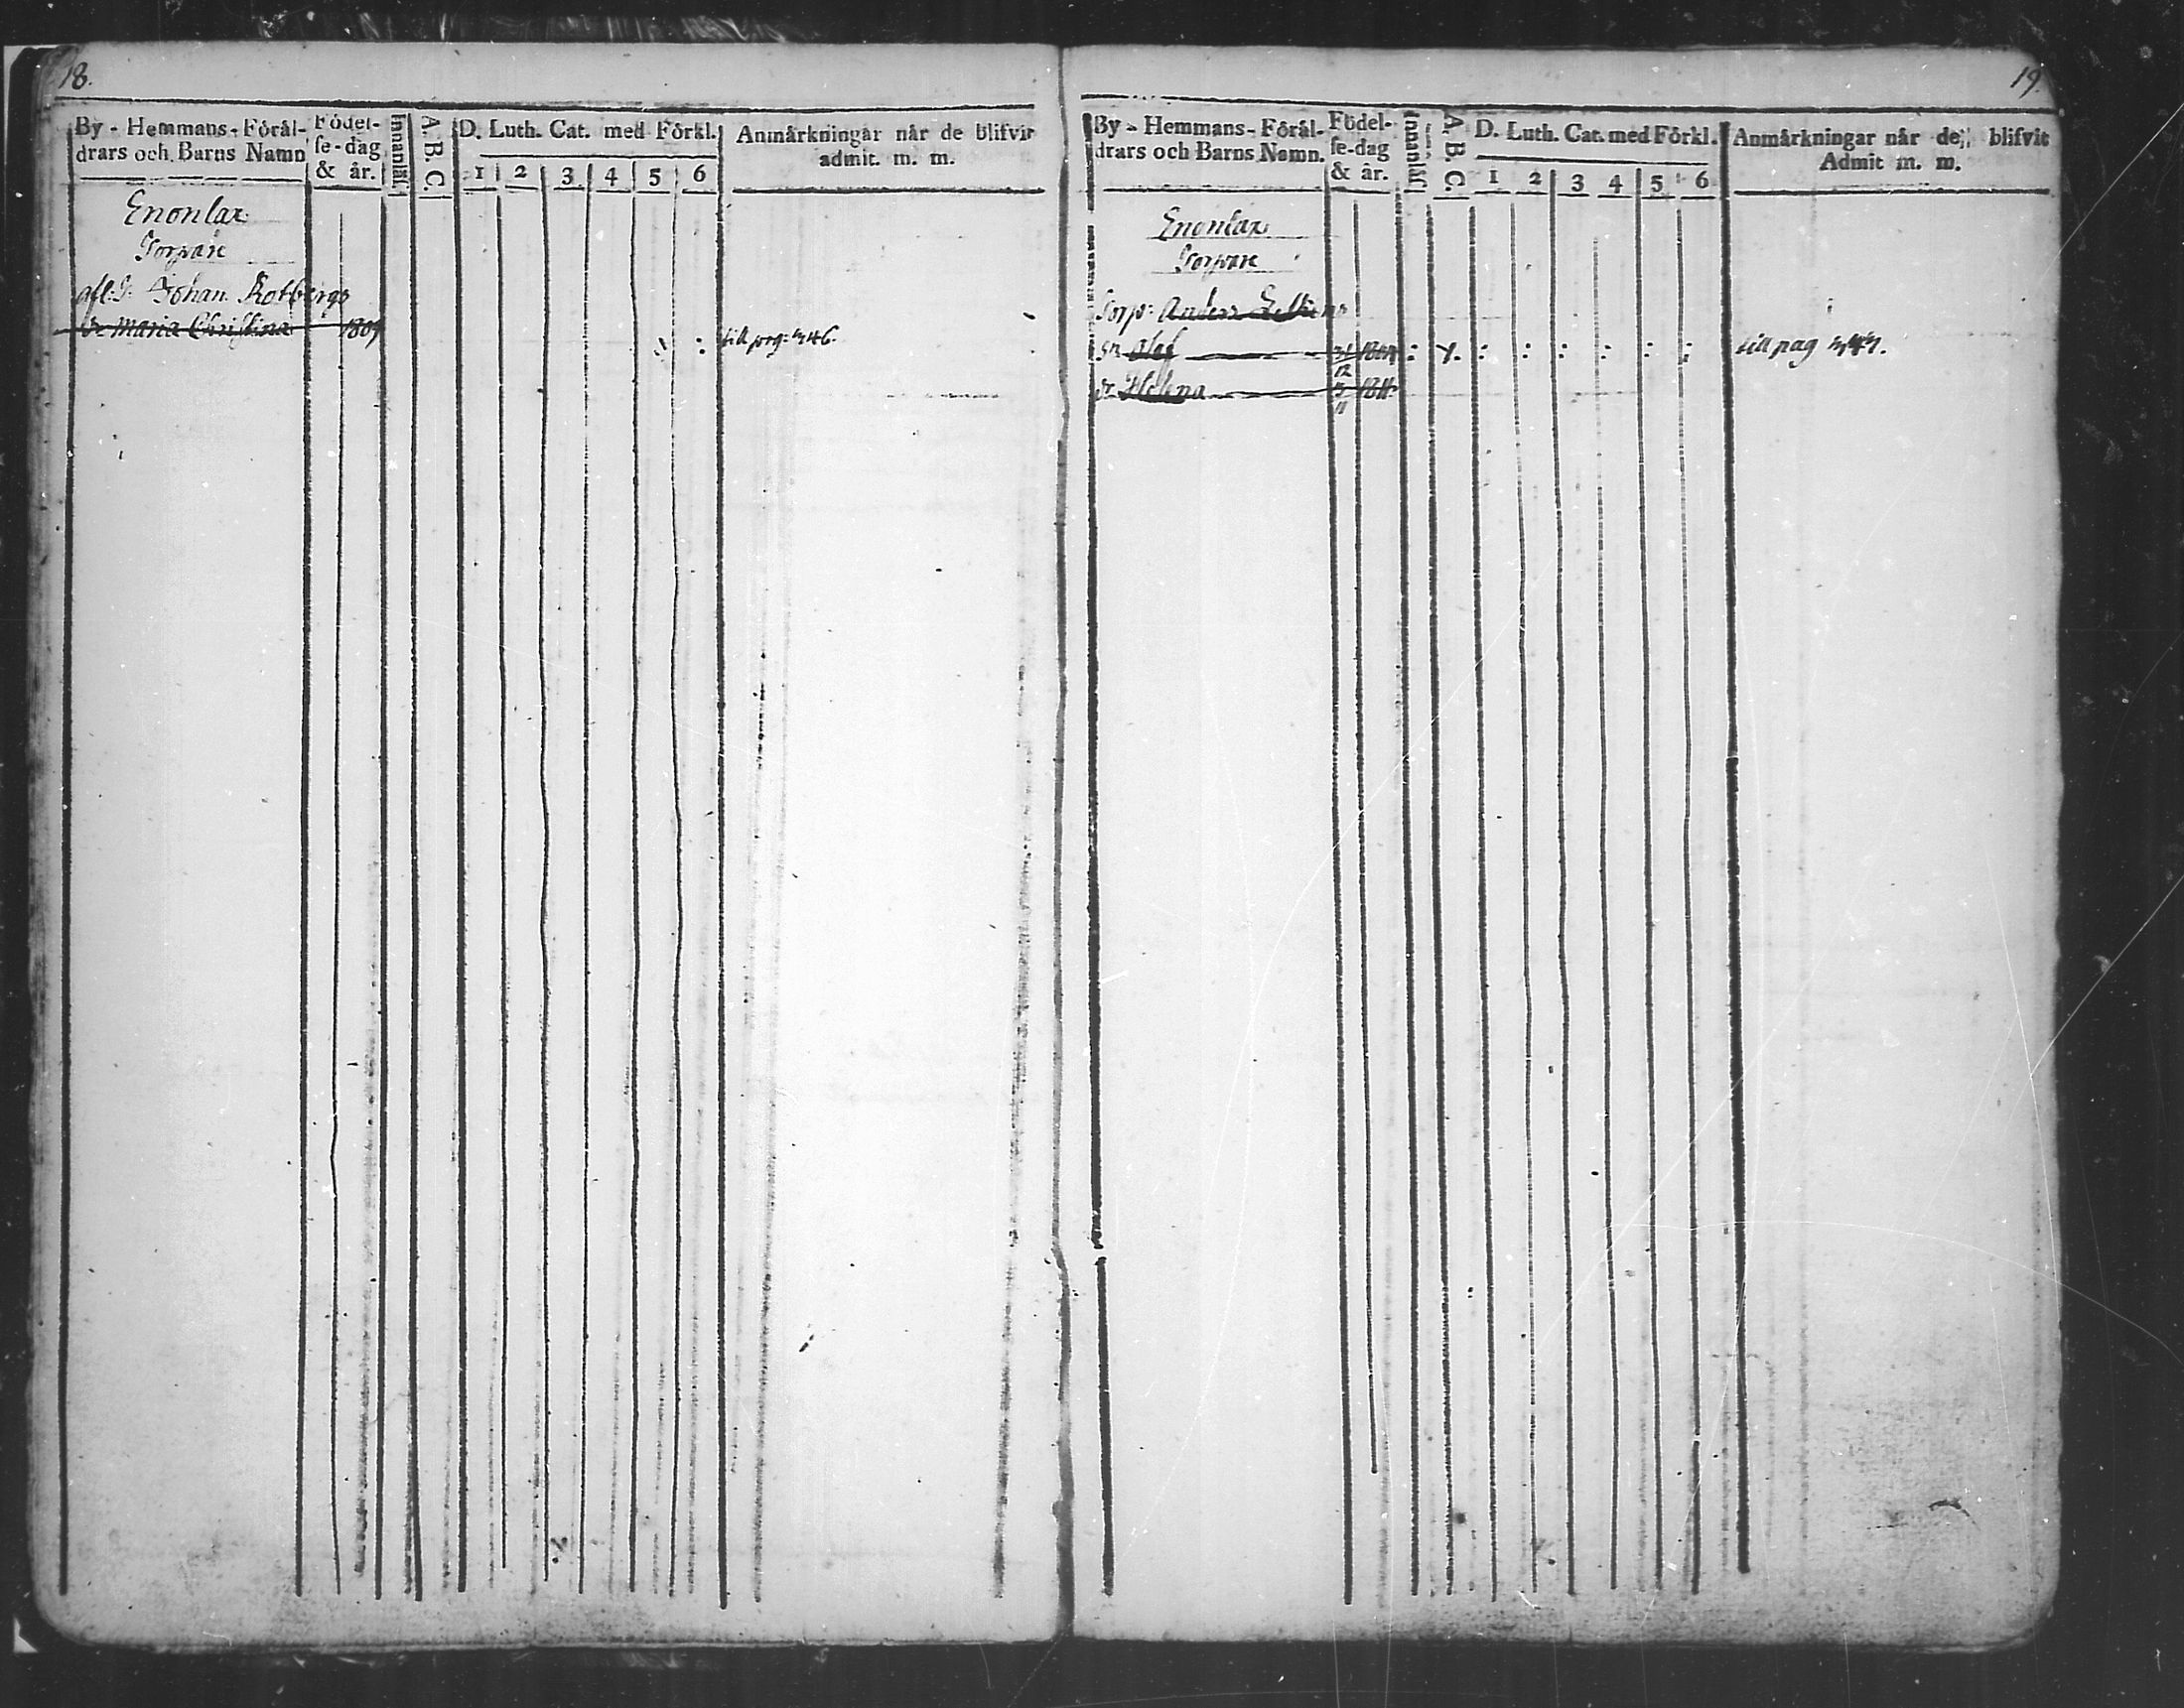 18.
By - Hemmans - Föräl-
drars och Barns Namn
Födel-
se-dag
& år.
Innanläs.
A. B. C.
D. Luth. Cat. med Förkl.
1 2 3 4 5 6
Anmärkningar når de blifvit
admit. m. m.
Enonlax
Torpare
afl. T. Johan Rotbergs
dr Maria Christina 1809 till pag: 346.
19.
By - Hemmans - Förål-
drars och Barns Namn.
Födel-
se-dag
& år.
Innanläs.
A. B. C.
D. Luth. Cat. med Förkl.
1 2 3 4 5 6
Anmårkningar når de blifvit
Admit m. m.
Enonlax
Torpare
Torp: Anders
sn Olof 31/12 till pag
dr Helena 11 1811